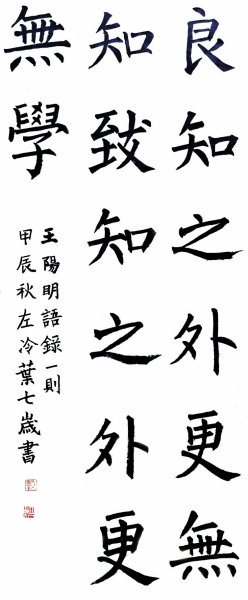 良知之外更無
知致知之外更
無學
王陽明語錄一則
甲辰秋左冷葉七歲書